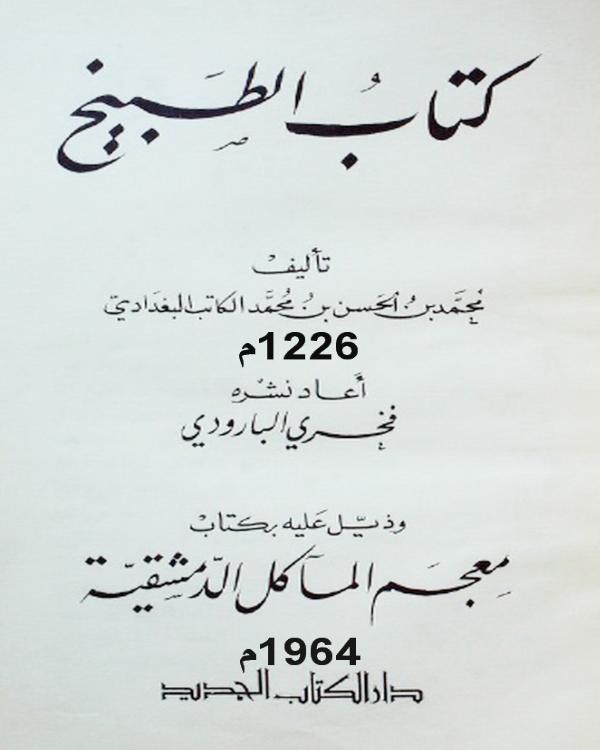 كتابُ الطَبيخ
تأليفْ
مُحمَّد بنُ الحَسن بنُ مُحمَّد الكاتب البغدَاديّ
1226م
أعَاد نشْره
فخري البارودي
وذيّل عَليه بكتابْ
مِعجَم المآكل الدّمشقيّة
1964م
دار الكتاب الجديد